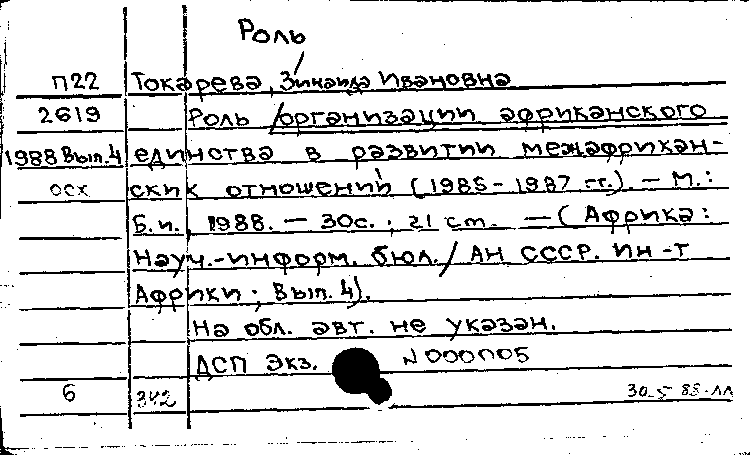 Роль
П22 Токарева, Зинаида Ивановна
2619 Роль организации африканского
1988 Вып.4 единства в развитии межафрикан-
осх ских отношений (1985-1987 гг.). — М.:
Б.и., 1988. — 30с.; 21 cm. — (Африка:
Науч.-информ. бюл. / АН СССР. Ин-т
Африки; Вып. 4).
На обл. авт. не указан.
ДСП Экз. N000005
6 342 30.5 88.